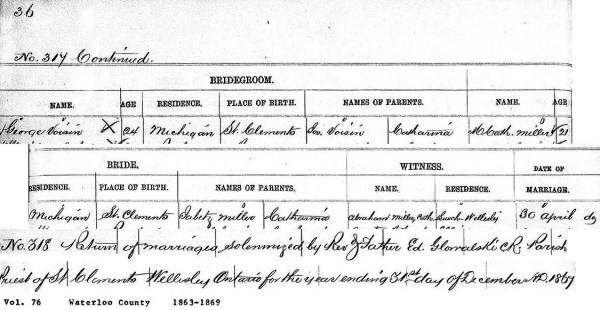 36
No. 317 Continued.
BRIDEGROOM.
NAME. AGE RESIDENCE. PLACE OF BIRTH. NAMES OF PARENTS. NAME. AGE
George Voisin X 24 Michigan St. Clements Jos. Voisin Catharina M Cath. Miller 21
BRIDE, WITNESS. DATE OF
RESIDENCE. PLACE OF BIRTH. NAMES OF PARENTS. NAME. RESIDENCE. MARRIAGE.
Michigan St. Clements miller Catharina Abraham Miller Cath. Wellesley 30 April
No. 318 Return of marriages solemnized by Rev'd Father Ed. R. Parish
Priest of St Clements Wellesley Ontario for the year ending 31st day of December AD. 1867
Vol. 76 Waterloo County 1863-1869